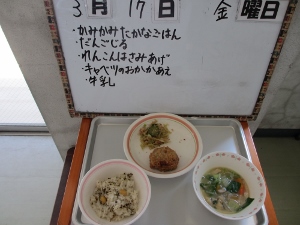 3月17日 金曜日
・かみかみたかなごはん
・だんごじる
・れんこんはさみあげ
・キャベツのおかかあえ
・牛乳